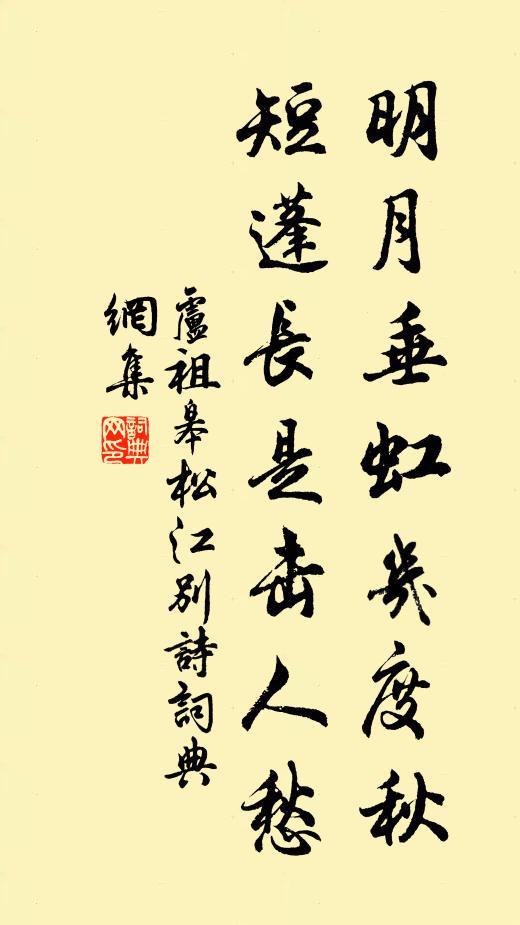 明月垂虹幾度秋
短蓬長是击人愁
盧祖皋松江別詩詞典
網集
詞典
网印